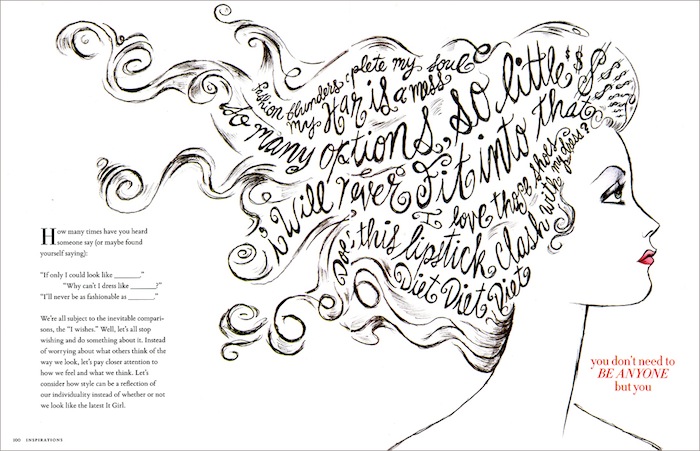 Fashion blunders plete my soul
my Hair is a mess
so many options, so little $$
i Will never Fit into that
I love those shoes
Does this lipstick Clash with my dress?
Diet Diet Diet
How many times have you heard
someone say (or maybe found
yourself saying):
"If only I could look like _______."
"Why can't I dress like _______?"
"I'll never be as fashionable as _______."
We're all subject to the inevitable compari-
sons, the "I wishes." Well, let's all stop
wishing and do something about it. Instead
of worrying about what others think of the
way we look, let's pay closer attention to
how we feel and what we think. Let's
consider how style can be a reflection of
our individuality instead of whether or not
we look like the latest It Girl.
you don't need to
BE ANYONE
but you
100 INSPIRATIONS